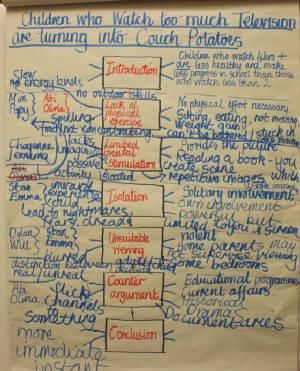 Children who Watch too much Television
are turning into Couch Potatoes
Introduction
Children who watch 4hrs +
are less healthy and make
less progress in school than those
who watch less than 2
Slow
no energy levels
no outdoor skills
Abi
Olivia
Lack of
physical
exercise
No physical effort necessary
sitting, eating, not moving
weight gain
can't be bothered
stuck in
spilling
food not concentrating
Limited
mental
Stimulation
Provides the picture
Reading a book - you
scene
repetitive images
lacks
imagination
passive
activity
Isolation
Solitary involvement
own involvement
Stan
Emma
experience
lead to nightmares
fears, dreads
powerful but
limited to you & screen
violent
Dylan
Will
Stan
Emma
Unsuitable
viewing
Some parents may
not supervise viewing
some bedrooms
blurred
distinction between
real / unreal
Counter
argument
Educational programmes
current affairs
historical
Dramas
Documentaries
Abi
Olivia
flick
channels
to
something
more
immediate
instant
Conclusion